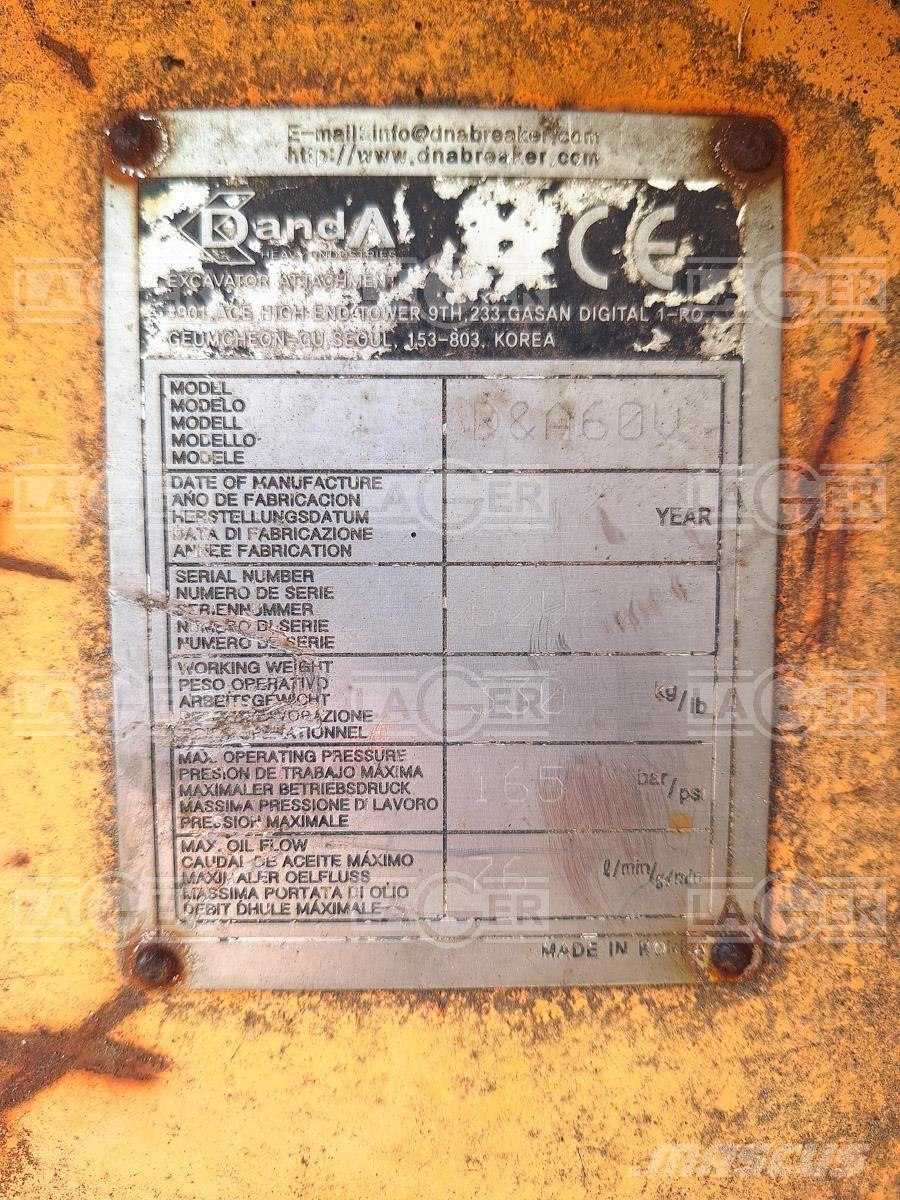 E-mail: info@dnabreaker.com
http://www.dnabreaker.com
DandA
HEAVY INDUSTRIES
CE
EXCAVATOR ATTACHMENT
#901, ACE HIGH-END TOWER 9TH, 233, GASAN DIGITAL 1-RO
GEUMCHEON-GU, SEOUL, 153-803, KOREA
MODEL
MODELO
MODELL
MODELLO
MODELE
D&A60V
DATE OF MANUFACTURE
AÑO DE FABRICACION
HERSTELLUNGSDATUM
DATA DI FABRICAZIONE
ANNEE FABRICATION
YEAR
SERIAL NUMBER
NUMERO DE SERIE
SERIENNUMMER
NUMERO DI SERIE
NUMERO DE SERIE
WORKING WEIGHT
PESO OPERATIVO
ARBEITSGEWICHT
kg/lb
MAX. OPERATING PRESSURE
PRESION DE TRABAJO MÁXIMA
MAXIMALER BETRIEBSDRUCK
MASSIMA PRESSIONE DI LAVORO
PRESSION MAXIMALE
165
bar/psi
MAX. OIL FLOW
CAUDAL DE ACEITE MÁXIMO
MAXIMALER OELFLUSS
MASSIMA PORTATA DI OLIO
DEBIT DHULE MÁXIMALE
ℓ/min/g/min
MADE IN KOREA
LAGER
MASCUS